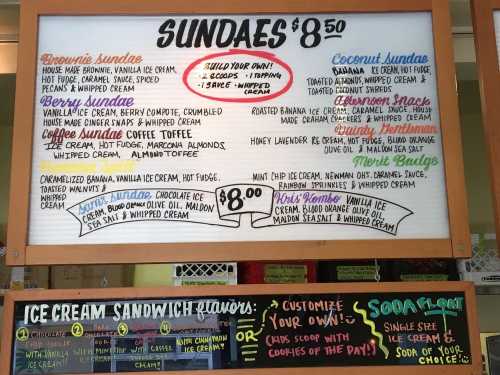 SUNDAES $8.50
Brownie Sundae
HOUSE MADE BROWNIE, VANILLA ICE CREAM,
HOT FUDGE, CARAMEL SAUCE, SPICED
PECANS & WHIPPED CREAM
Berry Sundae
VANILLA ICE CREAM, BERRY COMPOTE, CRUMBLED
HOUSE MADE GINGER SNAPS & WHIPPED CREAM
Coffee Sundae COFFEE TOFFEE
ICE CREAM, HOT FUDGE, MARCONA ALMONDS,
WHIPPED CREAM, ALMOND TOFFEE
CARAMELIZED BANANA, VANILLA ICE CREAM, HOT FUDGE,
TOASTED WALNUTS &
WHIPPED
CREAM
BUILD YOUR OWN!
• 2 SCOOPS • 1 TOPPING
• 1 SAUCE • WHIPPED
CREAM
Coconut Sundae
BANANA ICE CREAM, HOT FUDGE,
TOASTED ALMONDS, WHIPPED CREAM &
TOASTED COCONUT SHREDS
Afternoon Snack
ROASTED BANANA ICE CREAM, CARAMEL SAUCE, HOUSE
MADE GRAHAM CRACKERS & WHIPPED CREAM
Dainty Gentleman
HONEY LAVENDER ICE CREAM, HOT FUDGE, BLOOD ORANGE
OLIVE OIL & MALDON SEA SALT
Merit Badge
MINT CHIP ICE CREAM, NEWMAN OH'S, CARAMEL SAUCE,
RAINBOW SPRINKLES & WHIPPED CREAM
Sam's Sundae CHOCOLATE ICE
CREAM, BLOOD ORANGE OLIVE OIL, MALDON
SEA SALT & WHIPPED CREAM
$8.00
Kris' Kombo VANILLA ICE
CREAM, BLOOD ORANGE OLIVE OIL,
MALDON SEA SALT & WHIPPED CREAM
ICE CREAM SANDWICH flavors:
1 2 3 4
CHOCOLATE
WITH VANILLA
ICE CREAM!!
WITH MINT
WITH COFFEE
CREAM!
WITH CINNAMON
ICE CREAM!
OR
CUSTOMIZE
YOUR OWN!
(KIDS SCOOP WITH
COOKIES OF THE DAY!)
OR
SODA FLOAT
SINGLE SIZE
ICE CREAM &
SODA OF YOUR
CHOICE!